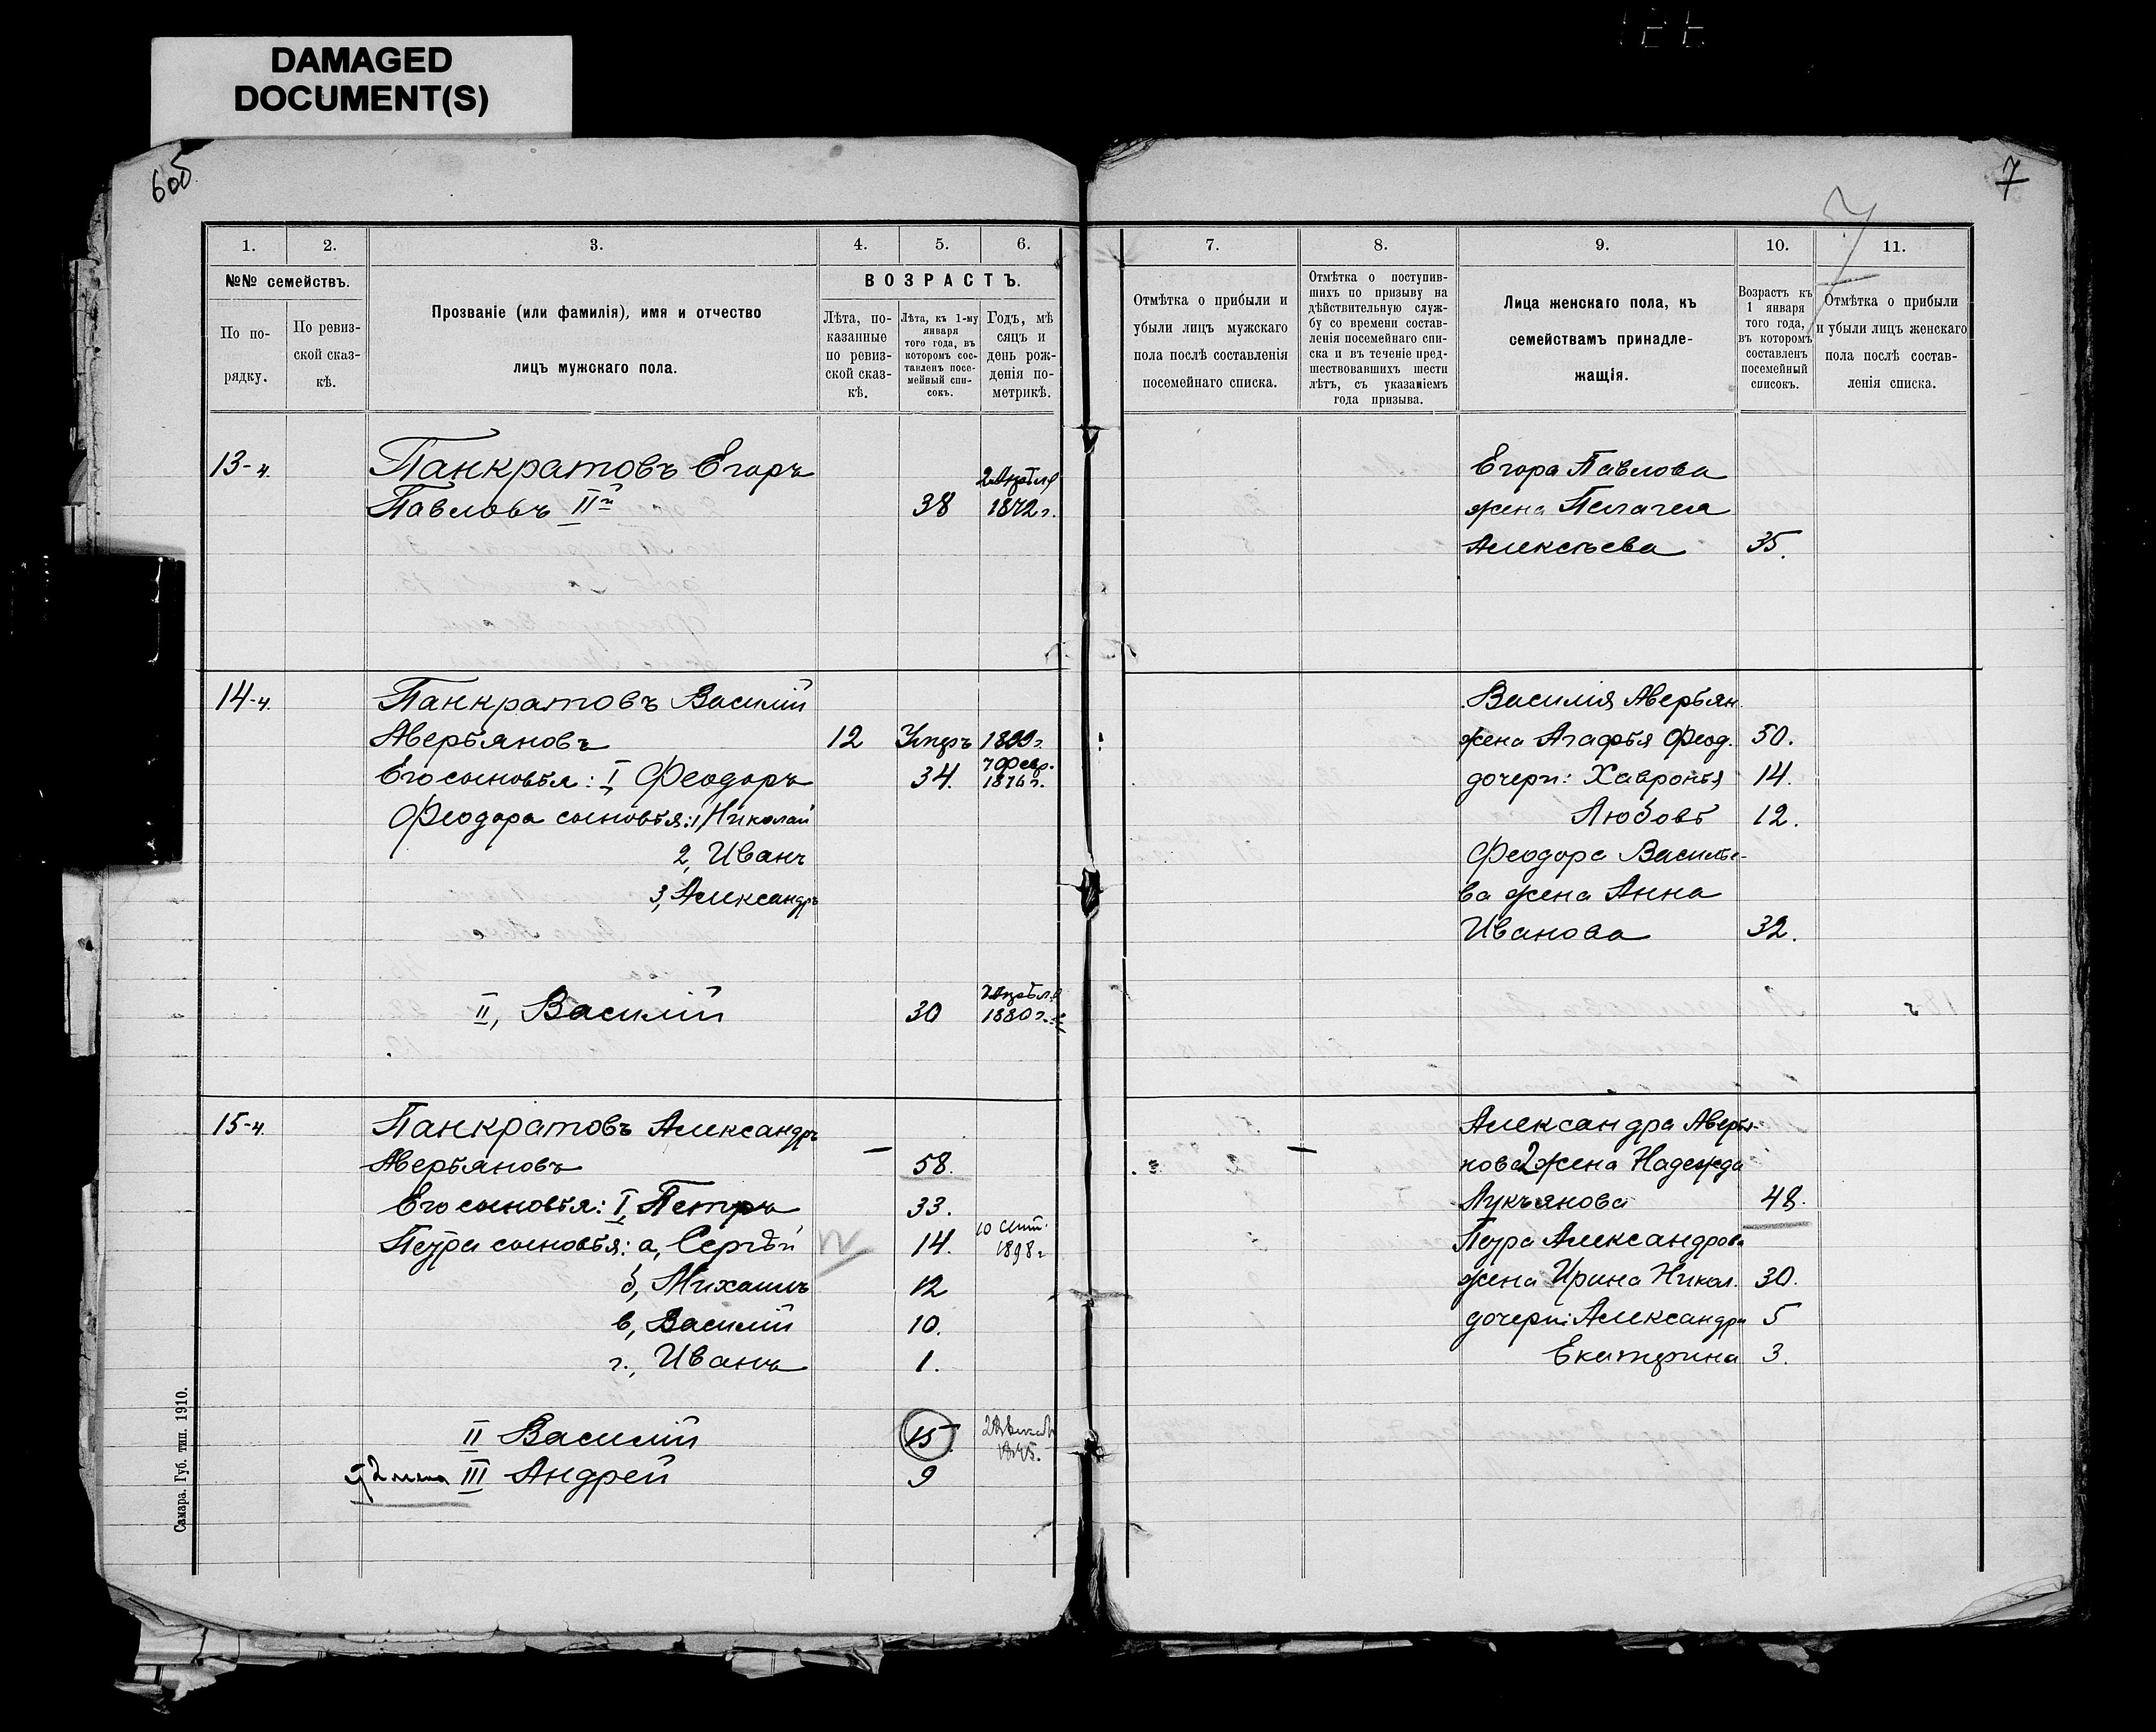 DAMAGED
DOCUMENT(S)
605
7
7
1.
2.
3.
4.
5.
6.
№№ семействъ.
По по-
рядку.
По ревиз-
ской сказ-
кѣ.
Прозваніе (или фамилія), имя и отчество
лицъ мужскаго пола.
ВОЗРАСТЪ.
Лѣта, по-
казанные
по ревиз-
ской сказ-
кѣ.
Лѣта, къ 1-му
января
того года, въ
которомъ сос-
тавленъ посе-
мейный спи-
сокъ.
Годъ, мѣ
сяцъ и
день рож-
денія по-
метрикѣ.
7.
8.
9.
10.
11.
Отмѣтка о прибыли и
убыли лицъ мужскаго
пола послѣ составленія
посемейнаго списка.
Отмѣтка о поступив-
шихъ по призыву на
дѣйствительную служ-
бу со времени состав-
ленія посемейнаго спи-
ска и въ теченіе пред-
шествовавшихъ шести
лѣтъ, съ указаніемъ
года призыва.
Лица женскаго пола, къ
семействамъ принадле-
жащія.
Возрастъ къ
1 января
того года,
въ которомъ
составленъ
посемейный
списокъ.
Отмѣтка о прибыли
и убыли лицъ женскаго
пола послѣ состав-
ленія списка.
13-ч. Панкратовъ Егоръ
2 Апрѣля
Павловъ IIй 38 1872 г.
Егора Павлова
жена Пелагея
Алексѣева 35.
14-ч. Панкратовъ Василій
Аверьяновъ 12 Умеръ 1899 г.
7 Февр.
Его сыновья: I, Феодоръ 34. 1876 г.
Феодора сыновья: 1, Николай
2, Иванъ
3, Александръ
2 Апрѣля
II, Василій 30 1880 г.
Василія Аверьян.
жена Агафья Феод. 50.
дочери: Хавронья 14.
Любовь 12.
Феодора Василье-
ва жена Анна
Иванова 32.
15-ч. Панкратовъ Александръ
Аверьяновъ — 58.
Его сыновья: I, Петръ 33.
Петра сыновья: а, Сергѣй 14. 10 Сент. 1898 г
б, Михаилъ 12
в, Василій 10.
г., Иванъ 1.
II Василій 15.
III Андрей 9
Александра Аверья-
нова 2 жена Надежда
Лукъянова 48.
Петра Александрова
жена Ирина Никол. 30.
дочери: Александра 5
Екатерина 3.
Самара. Губ. тип. 1910.